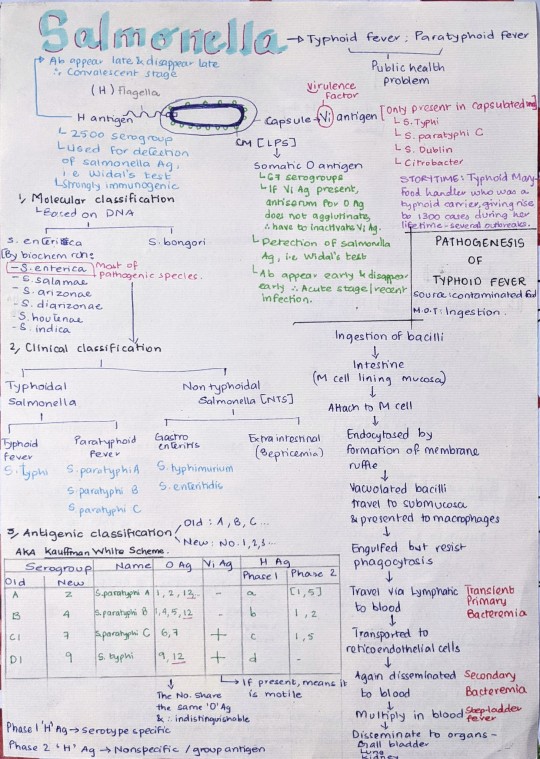 Salmonella → Typhoid fever; Paratyphoid fever
Public health
problem
Ab appear late & disappear
late
∴ Convalescent stage
(H) flagella
H antigen
2500 serogroup
Used for detection
of salmonella Ag,
i.e Widal's test
Strongly immunogenic
Virulence
Factor
Capsule - Vi antigen
[Only present in capsulated
S. Typhi
S. paratyphi C
S. Dublin
Citrobacter
CM [LPS]
Somatic O antigen
67 serogroups
If Vi Ag present,
antiserum for O Ag
does not agglutinate,
∴ have to inactivate Vi Ag.
Detection of salmonella
Ag, i.e Widal's test
Ab appear early & disappear
early ∴ Acute stage/recent
infection.
STORYTIME: Typhoid Mary-
Food handler who was a
typhoid carrier, giving rise
to 1300 cases during her
lifetime - several outbreaks.
1, Molecular classification
Based on DNA
S. enterica
S. bongori
[By biochem rdn:
- S. enterica
Most of
pathogenic species.
- S. salamae
- S. arizonae
- S. diarizonae
- S. houtenae
- S. indica
2, Clinical classification
Typhoidal
Salmonella
Non typhoidal
Salmonella [NTS]
Typhoid
fever
S. typhi
Paratyphoid
Fever
S. paratyphi A
S. paratyphi B
S. paratyphi C
Gastro
enteritis
S. typhimurium
S. enteritidis
Extraintestinal
(Septicemia)
3, Antigenic classification
Old : A, B, C...
New : No. 1,2,3...
AKA Kauffman White Scheme.
Serogroup Name O Ag Vi Ag H Ag
Old New Phase 1 Phase 2
A 2 S.paratyphi A 1, 2, 12 - a [1,5]
B 4 S.paratyphi B 1,4,5, 12 - b 1, 2
C1 7 S.paratyphi C 6,7 + c 1, 5
D1 9 S. typhi 9, 12 + d -
The No. share
the same 'O' Ag
& ∴ indistinguishable
If present, means it
is motile
Phase 1 'H' Ag → Serotype specific
Phase 2 'H' Ag → Nonspecific / group antigen
PATHOGENESIS
OF
TYPHOID FEVER
Source: contaminated fd
M.O.T: Ingestion.
Ingestion of bacilli
Intestine
(M cell lining mucosa)
Attach to M cell
Endocytosed by
formation of membrane
ruffle
Vacuolated bacilli
travel to submucosa
& presented to macrophages
Engulfed but resist
phagocytosis
Travel via Lymphatic
to blood
Transient
Primary
Bacteremia
Transported to
reticoendothelial cells
Again disseminated
to blood
Secondary
Bacteremia
Multiply in blood
Step-ladder
fever
Disseminate to organs -
Gall bladder
Lung
Kidney